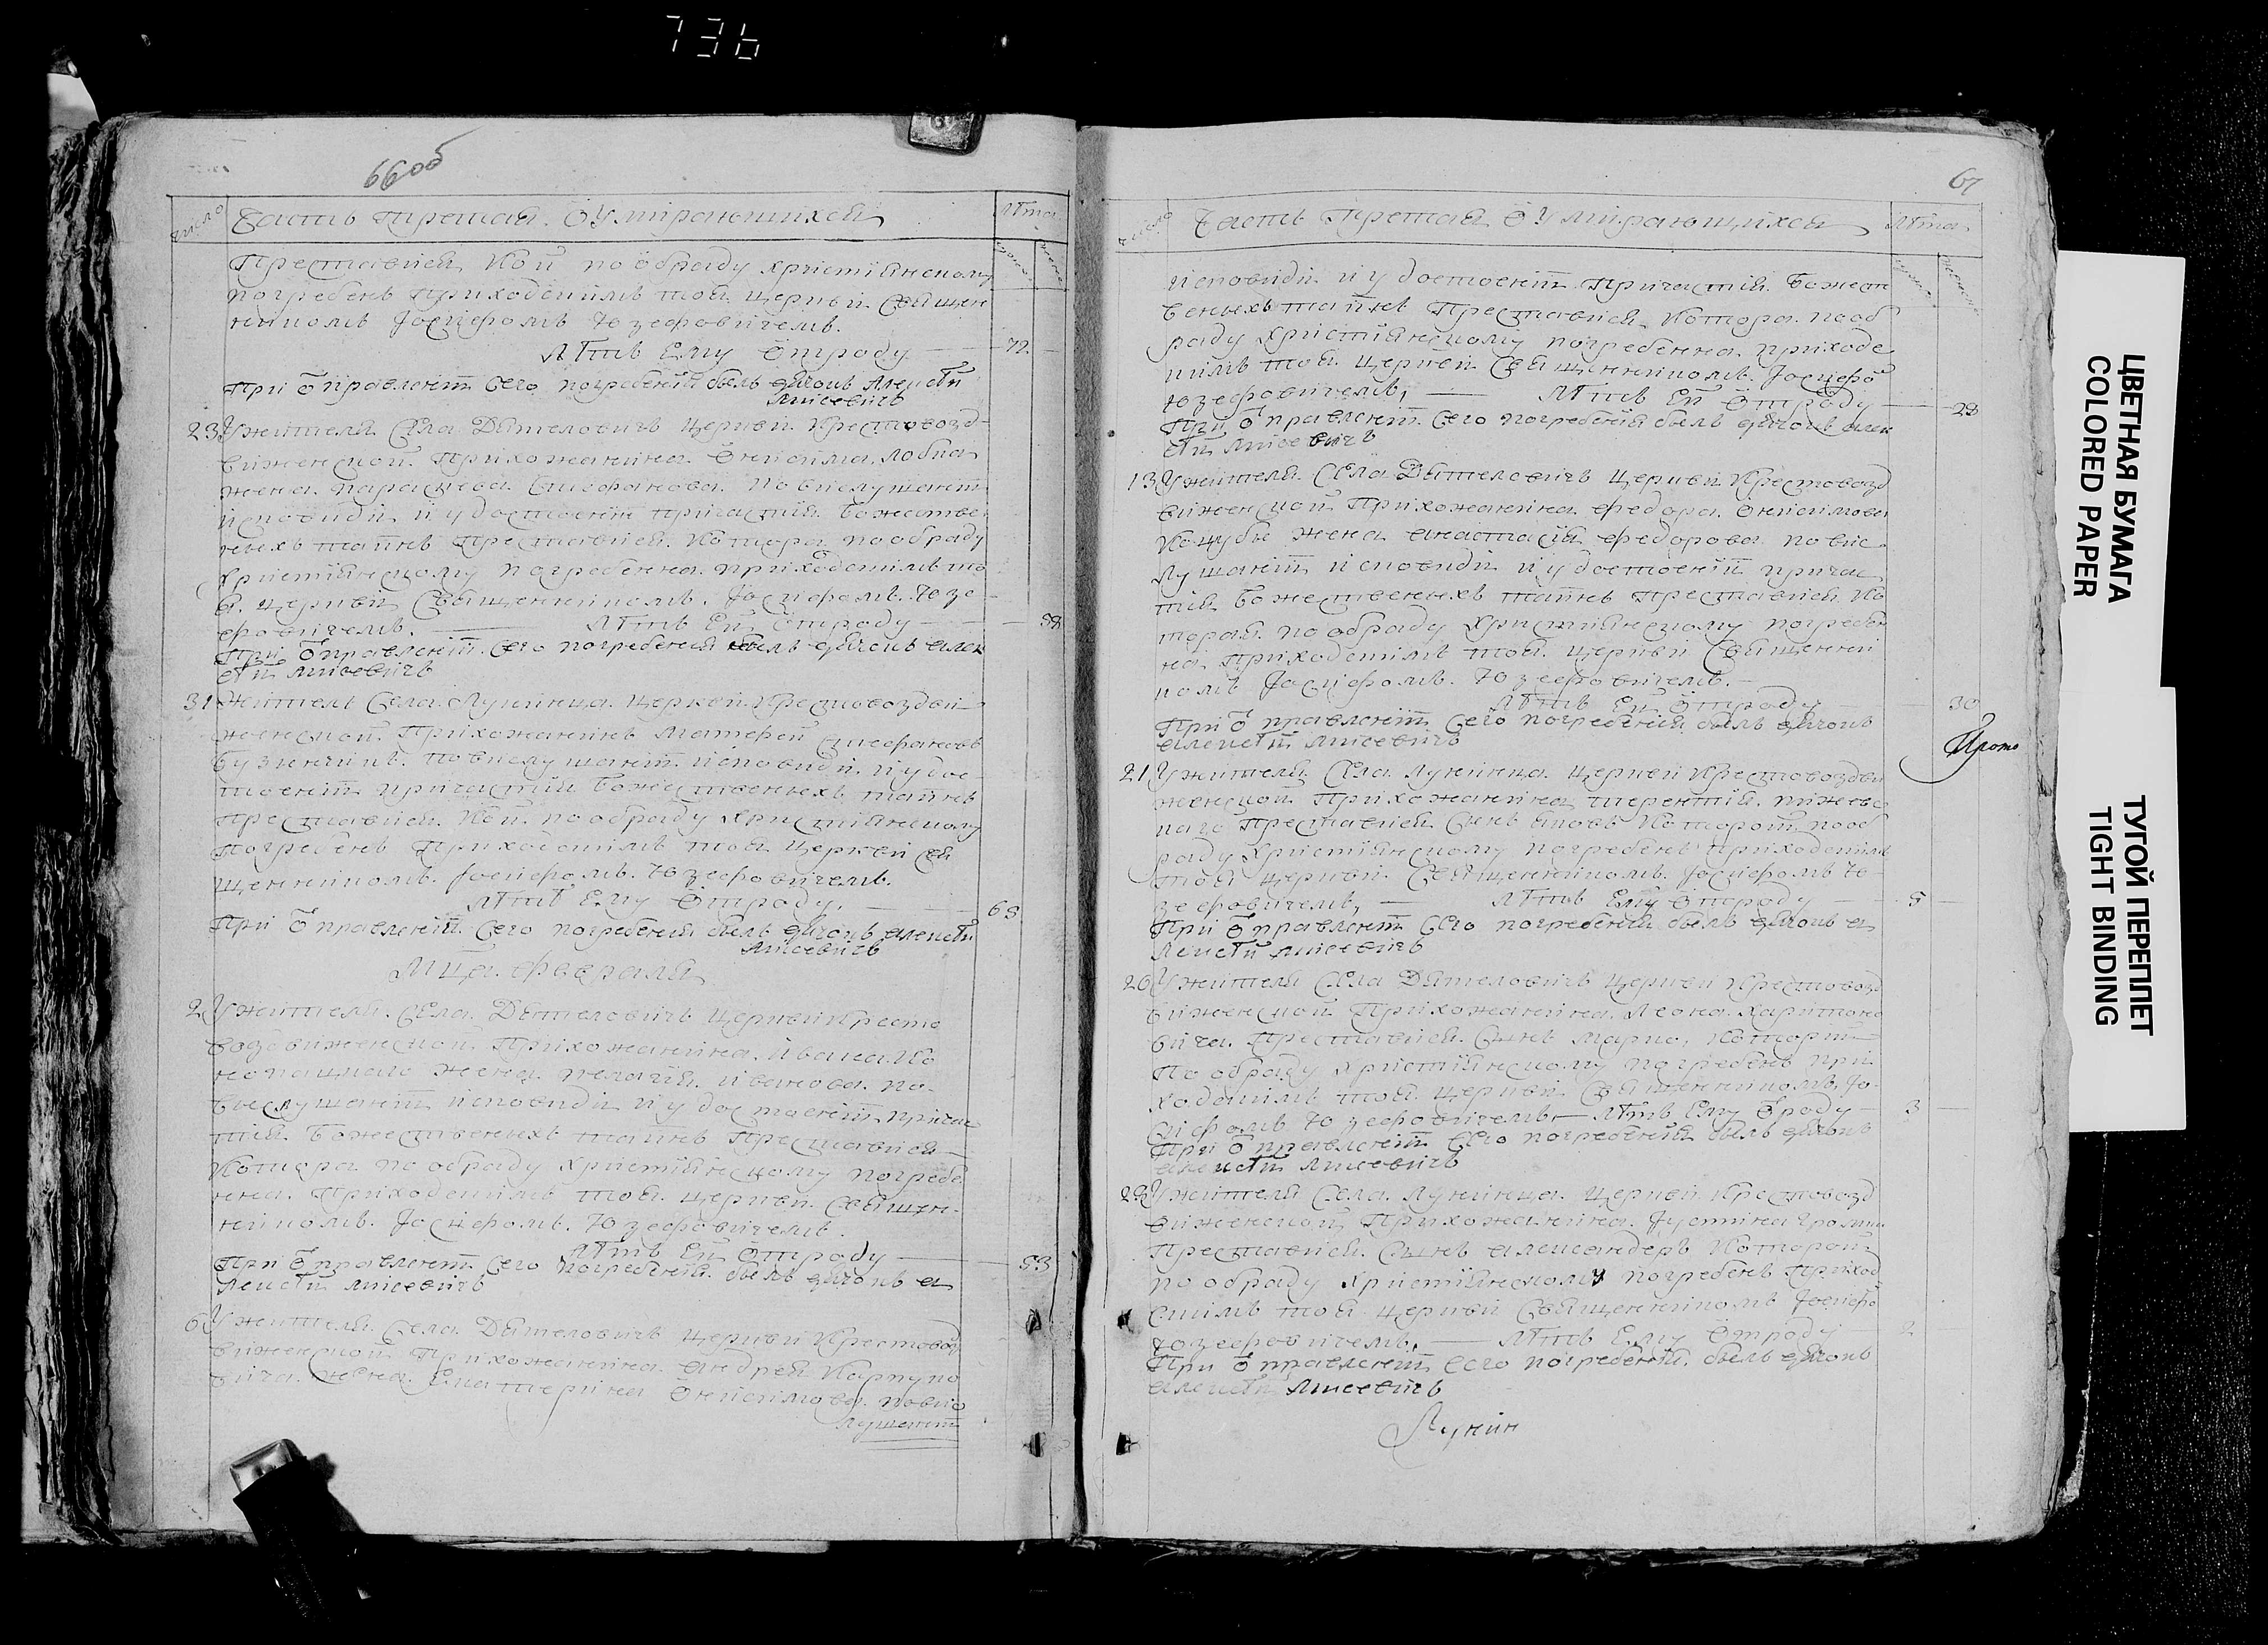 736
66об
число Часть третая. О Умираючихся Лѣта
Преставися Кой по обраду християнскому
погребенъ Приходскимъ тоя церкви Священ
никомъ Іосифомъ Юзефовичемъ.
Лѣтъ Ему Отроду 72
При Отправлении Сего погребения былъ дячокъ Алексѣй
Лисевичъ
23 Ужителя Села Дятеловичъ церкви Крестовозд
виженской Прихожанина Онисима
жена Параскева Стефанова. По выслушании
исповиди и удостоении причастия Божестве
ныхъ таинъ Преставися. Котора по обраду
Християнскому погребенна приходскимъ то
я церкви Священникомъ. Іосифомъ. Юзе
фовичемъ. Лѣтъ Ей Отроду
При Отправлении Сего погребения былъ дячокъ Алек
сѣй Лисевичъ
31 Житель Села Лунинца Церкви Крестовоздви
женской Прихожанинъ Матфей Стефановъ
по выслушании исповиди и удос
тоении причастия Божественныхъ таинъ
Преставися. Кой по обраду Християнскому
Погребенъ Приходскимъ тоя Церкви Свя
щенникомъ. Іосифомъ. Юзефовичемъ.
Лѣтъ Ему Отроду,
При Отправлении Сего погребения былъ дячокъ Алексѣй
Лисевичъ
Мца. Февраля
2 Ужителя Села Дятеловичъ Церкви Кресто
воздвиженской Прихожанина Ивана Ко
жена Пелагия Иванова по
выслушании исповиди и удостоении прича
тия Божественныхъ таинъ Преставися
Котора по обраду Християнскому погребе
нна. Приходскимъ тоя церкви Священ
никомъ. Іосифомъ. Юзефовичемъ.
Лѣтъ Ей Отроду 53
При Отправлении Сего погребения былъ дячокъ А
лексѣй Лисевичъ
6 Ужителя Села Дятеловичъ Церкви Крестовоз
виженской Прихожанина Андрея Карпуно
вича жена Екатерина Онисимова по выс
лушании
67
число Часть Третая О Умирающихся Лѣта
исповиди и удостоении Причастия Божест
веныхъ таинъ Преставися Котора по об
раду Християнскому погребенна приходс
кимъ тоя церкви Священникомъ Іосифо
Юзефовичемъ, Лѣтъ Ей Отроду
При Отправлении Сего погребения былъ дячокъ Алек
сѣй Лисевичъ
13 Ужителя Села Дятеловичъ Церкви Крестовозд
виженской Прихожанина Федора Онисимова
Коцубы жена Анастасия Федорова по выс
лушании исповиди и удостоении причас
тия Божественныхъ таинъ Преставися Ко
торая по обраду Християнскому погребен
на Приходскимъ тоя церкви Священни
комъ Іосифомъ. Юзефовичемъ.
Лѣтъ Ей Отроду 30
При Отправлении Сего погребения былъ дячокъ
Алексѣй Лисевичъ
Прото
21 Ужителя Села Лунинца Церкви Крестовоздви
женской Прихожанина Терентия
Преставися Сынъ Яковъ Которой по об
раду Християнскому погребенъ приходскимъ
тоя церкви Священникомъ Іосифомъ Ю
зефовичемъ, Лѣтъ Ему Отроду 5
При Отправлении Сего погребения былъ дячокъ А
лексѣй Лисевичъ
26 Ужителя Села Дятеловичъ Церкви Крестовозд
виженской Прихожанина Леона Харитоно
вича Преставися Сынъ Марко, Которій
По обраду Християнскому погребенъ при
ходскимъ тоя церкви Священникомъ Іо
сифомъ Юзефовичемъ Лѣтъ Ему Отроду 3
При Отправлении Сего погребения былъ дячокъ
Алексѣй Лисевичъ
Ужителя Села Лунинца Церкви Крестовозд
виженской Прихожанина Іустина
Преставися Сынъ Александеръ Которой
по обраду Християнскому погребенъ Приход
скимъ тоя церкви Священникомъ Іосифо
Юзефовичемъ. Лѣтъ Ему Отроду 2
При Отправлении Сего погребения былъ дячокъ
Алексѣй Лисевичъ
Лунин
ЦВЕТНАЯ БУМАГА
COLORED PAPER
ТУГОЙ ПЕРЕПЛЕТ
TIGHT BINDING